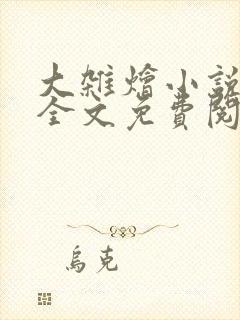 大雜燴小説
全文免費閱
烏克